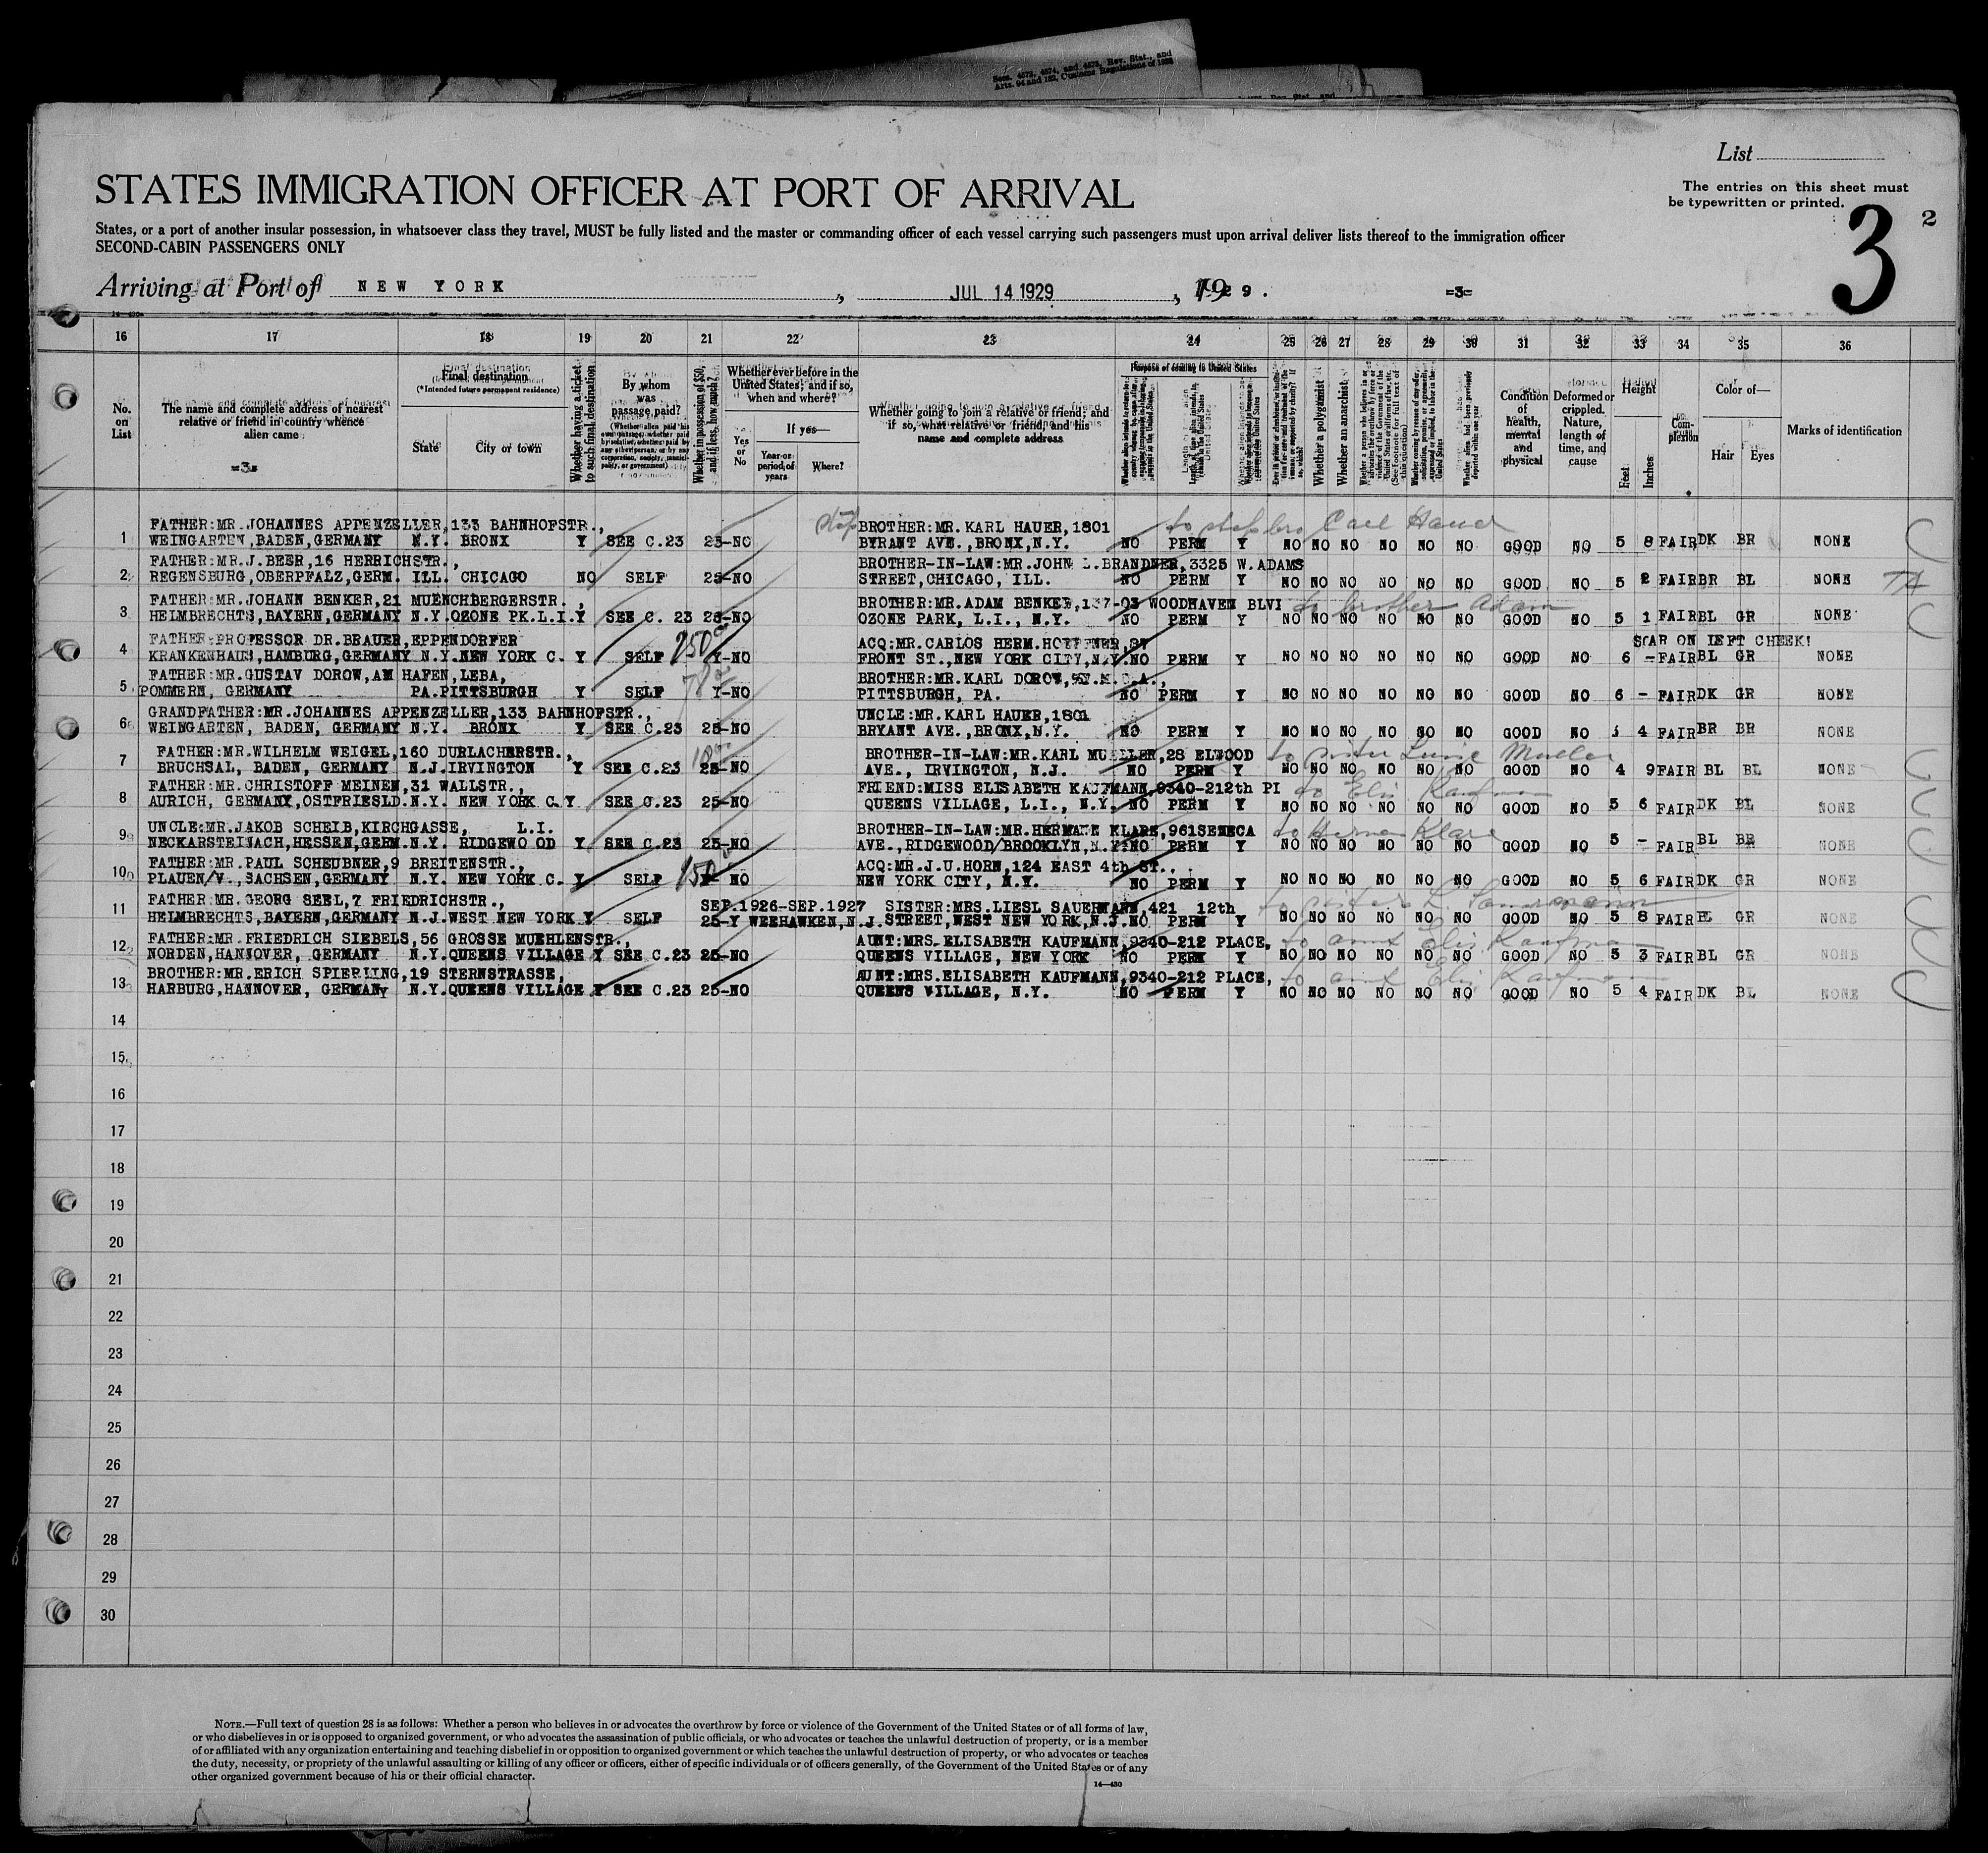 Secs. 4573, 4574, and 4575, Rev. Stat., and
Arts. 94 and 162, Customs Regulations of 1923
List
The entries on this sheet must
be typewritten or printed.
3 2
STATES IMMIGRATION OFFICER AT PORT OF ARRIVAL
States, or a port of another insular possession, in whatsoever class they travel, MUST be fully listed and the master or commanding officer of each vessel carrying such passengers must upon arrival deliver lists thereof to the immigration officer
SECOND-CABIN PASSENGERS ONLY
Arriving at Port of NEW YORK, JUL 14 1929, 1929. -3-
16 17 18 19 20 21 22 23 24 25 26 27 28 29 30 31 32 33 34 35 36
No. on List
The name and complete address of nearest relative or friend in country whence alien came
-3-
Final destination
(*Intended future permanent residence)
State City or town
Whether having a ticket to such final destination
By whom was passage paid?
(Whether alien paid his own passage, whether paid by relative, whether paid by any other person, or by any corporation, society, municipality, or government)
Whether in possession of $50, and if less, how much?
Whether ever before in the United States; and if so, when and where?
Yes or No
If yes—
Year or period of years
Where?
Whether going to join a relative or friend; and if so, what relative or friend, and his name and complete address
Purpose of coming to United States
Whether a polygamist
Whether an anarchist
Condition of health, mental and physical
Deformed or crippled. Nature, length of time, and cause
Height
Feet Inches
Complexion
Color of—
Hair Eyes
Marks of identification
1 FATHER:MR.JOHANNES APPENZELLER,133 BAHNHOFSTR., BROTHER:MR.KARL HAUER,1801
WEINGARTEN,BADEN,GERMANY N.Y. BRONX Y SEE C.23 25-NO BYRANT AVE.,BRONX,N.Y. NO PERM Y NO NO NO NO NO NO GOOD NO 5 8 FAIR DK BR NONE
2 FATHER:MR.J.BEER,16 HERRICHSTR., BROTHER-IN-LAW:MR.JOHN L.BRANDNER,3325 W.ADAMS
REGENSBURG,OBERPFALZ,GERM. ILL. CHICAGO NO SELF 25-NO STREET,CHICAGO, ILL. NO PERM Y NO NO NO NO NO NO GOOD NO 5 2 FAIR BR BL NONE
3 FATHER:MR.JOHANN BENKER,21 MUENCHBERGERSTR., BROTHER:MR.ADAM BENKER,137-03 WOODHAVEN BLVI to brother Adam
HELMBRECHTS,BAYERN,GERMANY N.Y.OZONE PK.L.I.Y SEE C. 23 25-NO OZONE PARK, L.I., N.Y. NO PERM Y NO NO NO NO NO NO GOOD NO 5 1 FAIR BL GR NONE
4 FATHER:PROFESSOR DR.BRAUER,EPPENDORFER ACQ:MR.CARLOS HERM. SCAR ON LEFT CHEEK!
KRANKENHAUS,HAMBURG,GERMANY N.Y.NEW YORK C. Y SELF 250 Y-NO FRONT ST.,NEW YORK CITY,N.Y.NO PERM Y NO NO NO NO NO NO GOOD NO 6 - FAIR BL GR NONE
5 FATHER:MR.GUSTAV DOROW,AM HAFEN,LEBA, BROTHER:MR.KARL DOROW, Y.M.C.A.,
POMMERN, GERMANY PA.PITTSBURGH Y SELF Y-NO PITTSBURGH, PA. NO PERM Y NO NO NO NO NO NO GOOD NO 6 - FAIR DK GR NONE
6 GRANDFATHER:MR.JOHANNES APPENZELLER,133 BAHNHOFSTR., UNCLE:MR.KARL HAUER,1801
WEINGARTEN, BADEN, GERMANY N.Y. BRONX Y SEE C.23 25-NO BRYANT AVE.,BRONX,N.Y. NO PERM Y NO NO NO NO NO NO GOOD NO 4 FAIR BR BR NONE
7 FATHER:MR.WILHELM WEIGEL,160 DURLACHERSTR., BROTHER-IN-LAW:MR.KARL MUELLER,28 ELWOOD to sister Mueller
BRUCHSAL, BADEN, GERMANY N.J.IRVINGTON Y SEE C.23 25-NO AVE., IRVINGTON, N.J. NO PERM Y NO NO NO NO NO NO GOOD NO 4 9 FAIR BL BL NONE
8 FATHER:MR.CHRISTOFF MEINEN,31 WALLSTR., FRIEND:MISS ELISABETH KAUFMANN,9340-212th Pl
AURICH, GERMANY,OSTFRIESLD.N.Y. NEW YORK C.Y SEE C.23 25-NO QUEENS VILLAGE, L.I., N.Y. NO PERM Y NO NO NO NO NO NO GOOD NO 5 6 FAIR DK BL NONE
9 UNCLE:MR.JAKOB SCHEIB,KIRCHGASSE, L.I. BROTHER-IN-LAW:MR.HERMANN KLARE,961SENECA to Herman Klare
NECKARSTEINACH,HESSEN,GERM.N.Y. RIDGEWOOD Y SEE C.23 25-NO AVE.,RIDGEWOOD/BROOKLYN,N.Y.NO PERM Y NO NO NO NO NO NO GOOD NO 5 - FAIR BL BR NONE
10 FATHER:MR.PAUL SCHEUBNER,9 BREITENSTR., ACQ:MR.J.U.HORN,124 EAST 4th ST.,
PLAUEN/V.,SACHSEN,GERMANY N.Y. NEW YORK C. Y SELF 150 Y NO NEW YORK CITY, N.Y. NO PERM Y NO NO NO NO NO NO GOOD NO 5 6 FAIR DK GR NONE
11 FATHER:MR.GEORG SEEL,7 FRIEDRICHSTR., SEP.1926-SEP.1927 SISTER:MRS.LIESL SAUERMANN,421 12th
HELMBRECHTS,BAYERN,GERMANY N.J.WEST NEW YORK Y SELF 25-Y WEEHAWKEN,N.J.STREET,WEST NEW YORK,N.J.NO PERM Y NO NO NO NO NO NO GOOD NO 5 8 FAIR BL GR NONE
12 FATHER:MR.FRIEDRICH SIEBELS,56 GROSSE MUEHLENSTR., AUNT:MRS.ELISABETH KAUFMANN,9340-212 PLACE, to aunt Elis Kaufman
NORDEN,HANNOVER, GERMANY N.Y.QUEENS VILLAGE Y SEE C.23 25-NO QUEENS VILLAGE, NEW YORK NO PERM Y NO NO NO NO NO NO GOOD NO 5 3 FAIR BL GR NONE
13 BROTHER:MR.ERICH SPIERLING,19 STERNSTRASSE, AUNT:MRS.ELISABETH KAUFMANN,9340-212 PLACE, to aunt Elis Kaufman
HARBURG,HANNOVER, GERMANY N.Y.QUEENS VILLAGE Y SEE C.23 25-NO QUEENS VILLAGE, N.Y. NO PERM Y NO NO NO NO NO NO GOOD NO 5 4 FAIR DK BL NONE
14
15
16
17
18
19
20
21
22
23
24
25
26
27
28
29
30
NOTE.—Full text of question 28 is as follows: Whether a person who believes in or advocates the overthrow by force or violence of the Government of the United States or of all forms of law,
or who disbelieves in or is opposed to organized government, or who advocates the assassination of public officials, or who advocates or teaches the unlawful destruction of property, or is a member
of or affiliated with any organization entertaining and teaching disbelief in or opposition to organized government or which teaches the unlawful destruction of property, or who advocates or teaches
the duty, necessity, or propriety of the unlawful assaulting or killing of any officer or officers, either of specific individuals or of officers generally, of the Government of the United States or of any
other organized government because of his or their official character.
14—430